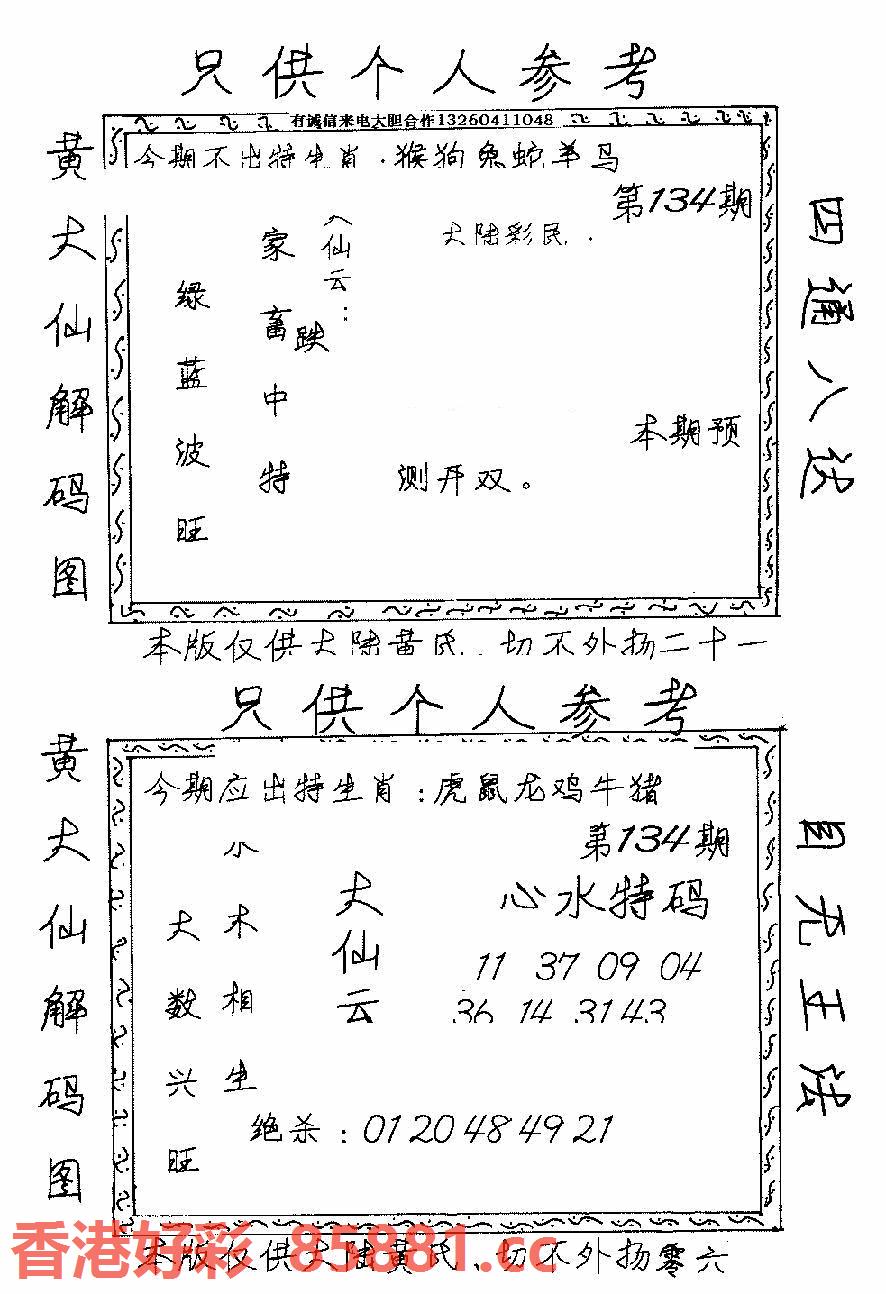 只供个人参考
有诚信来电大胆合作13260411048
今期不出特生肖.猴狗兔蛇羊马
第134期
黄大仙解码图
绿蓝波旺
家畜中特
仙云:
跌
大陆彩民.
本期预
测开双。
四通八达
本版仅供大陆黄民..切不外扬二十一
只供个人参考
今期应出特生肖:虎鼠龙鸡牛猪
第134期
黄大仙解码图
大数兴旺
小木相生
大仙云
心水特码
11 37 09 04
36 14 31 43
绝杀:01 20 48 49 21
目无王法
香港好彩 85881.cc
本版仅供大陆黄民、切不外扬零六